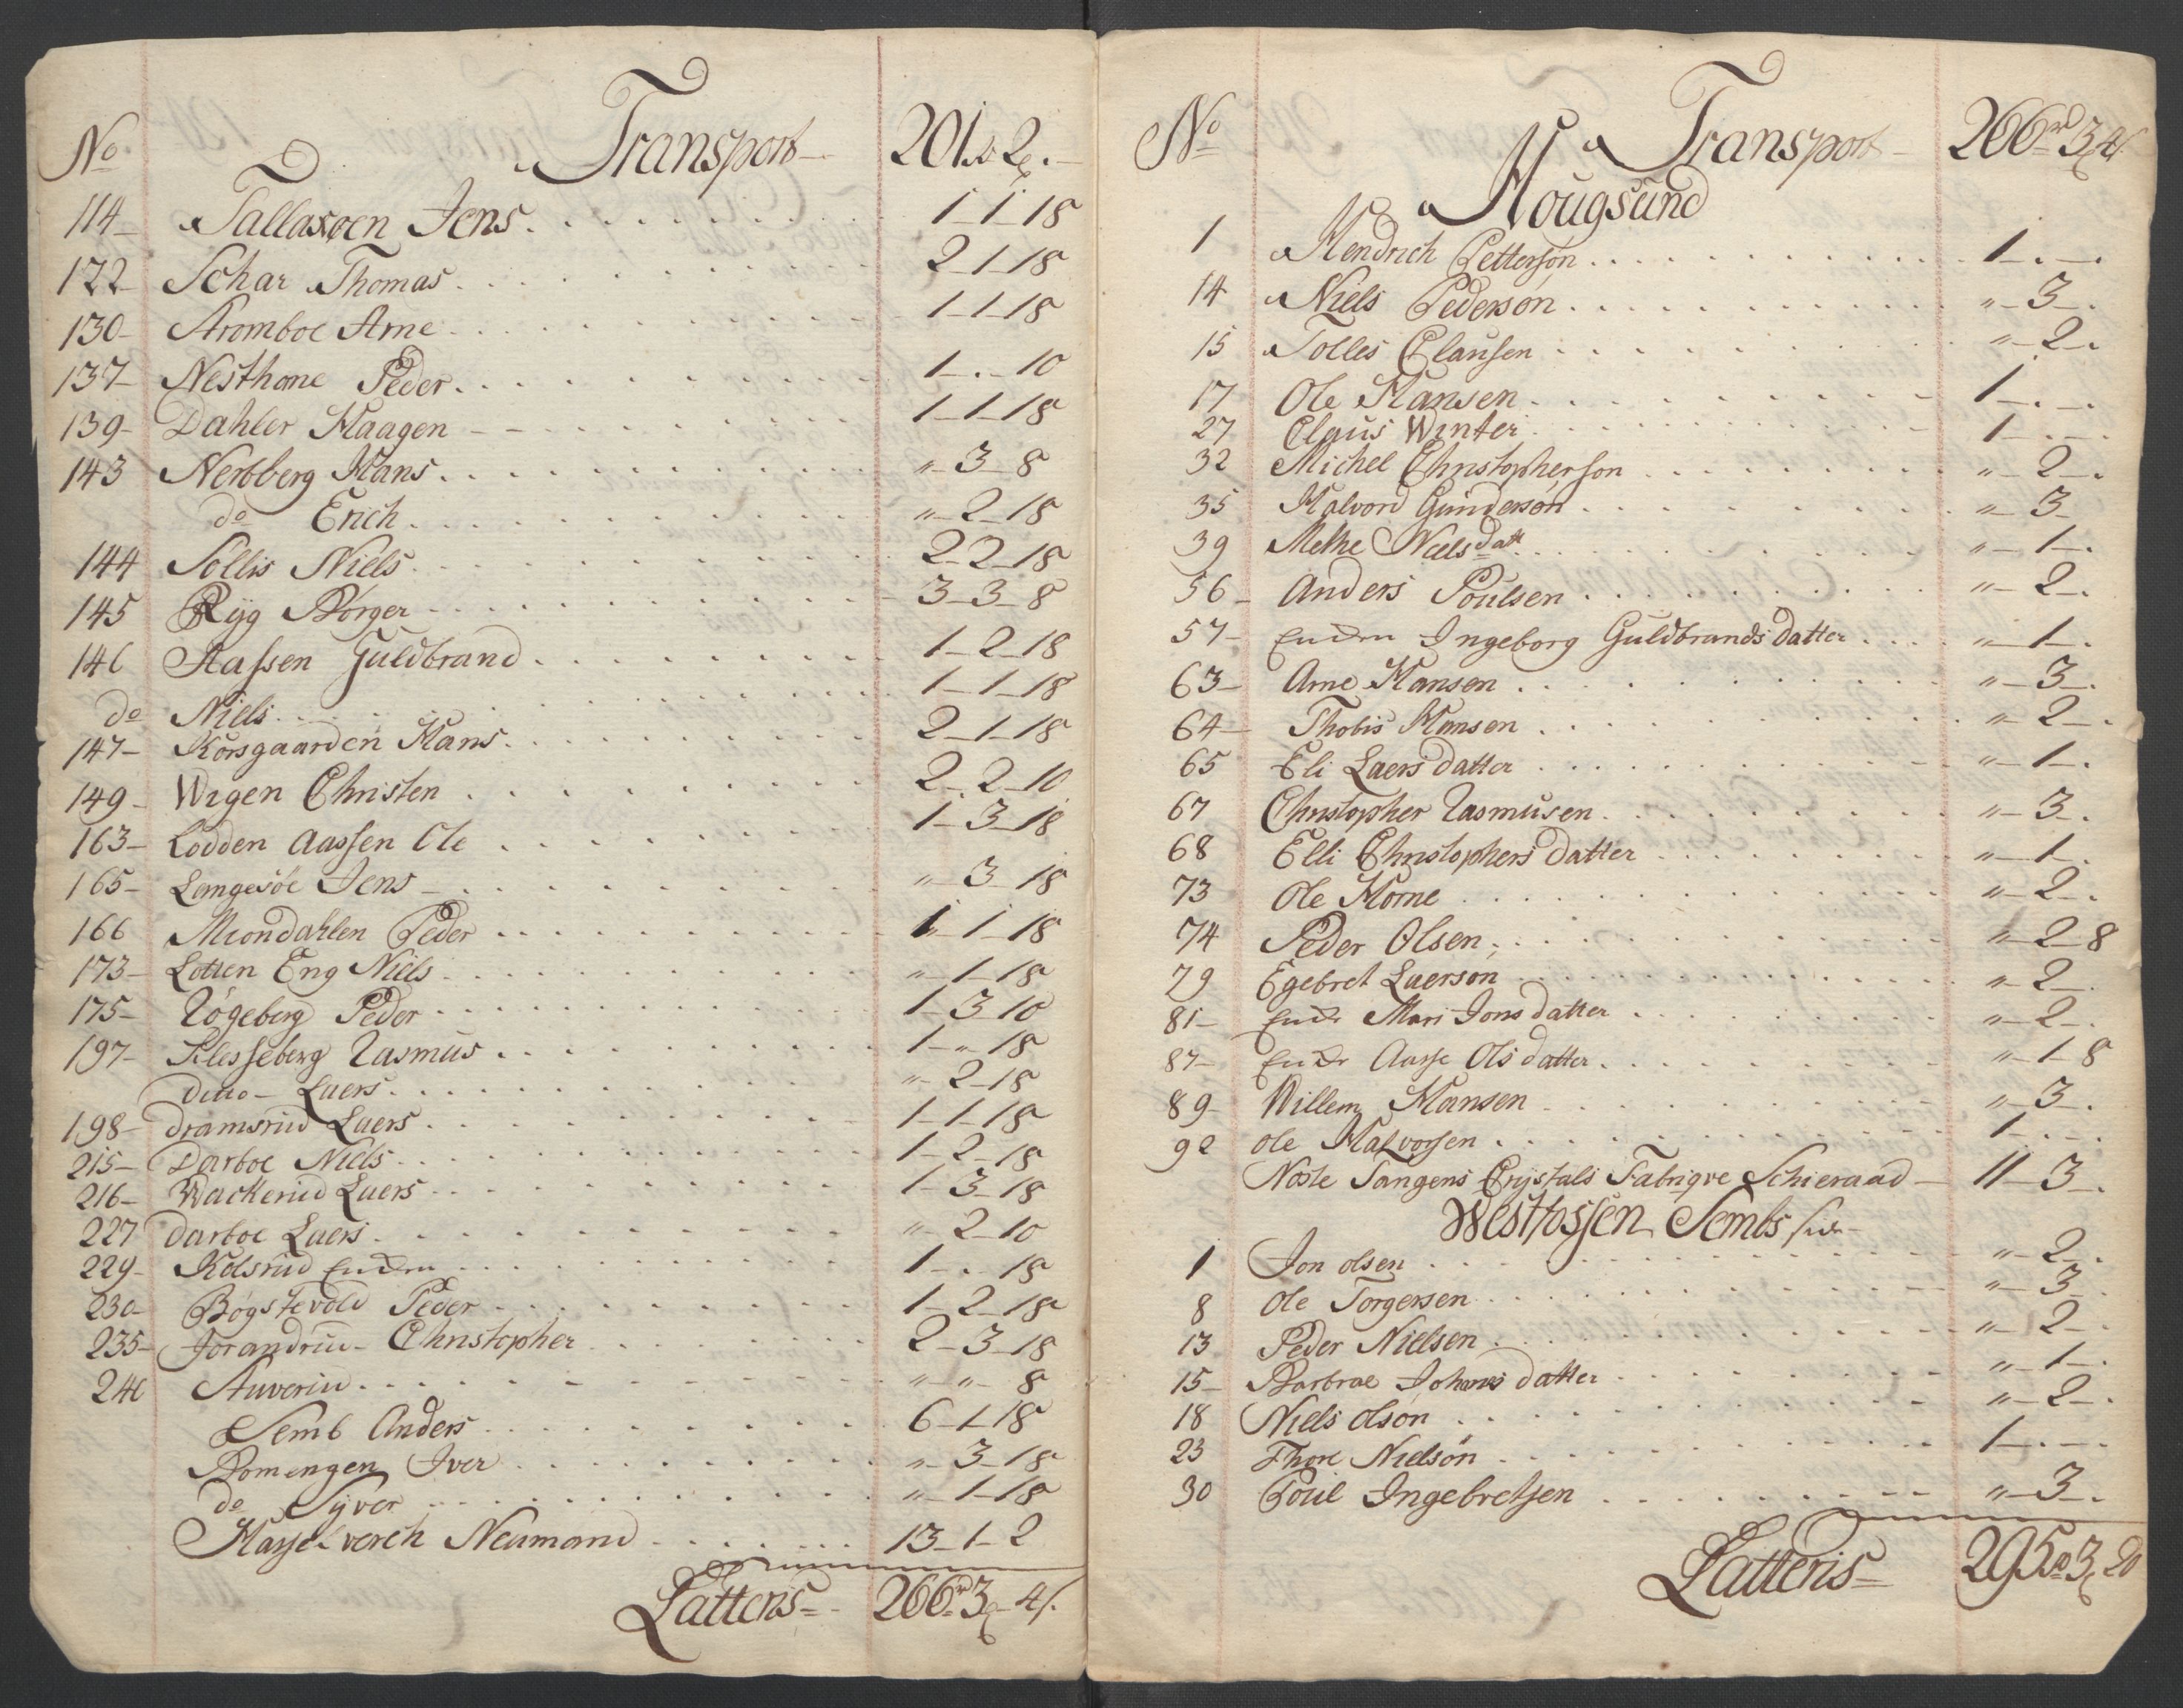 No
Transport 201. 2.
114 Tallaxoen Jens 1-1-18
122 Schar Thomas 2-1-18
130 Stromboe Arne 1-1-18
137 Nesthorne Peder 1-.-10
139 Dahler Haagen 1-1-18
143 Nerbberg Hans "-3-8
do Erich "-2-18
144 Sollis Niels 2-2-18
145 Ryg Børger 3-3-8
146 Aassen Guldbrand 1-2-18
do Niels 1-1-18
147 Korsgaarden Hans 2-1-18
149 Wigen Christen 2-2-10
163 Lodden Aassen Ole 1-3-18
165 Langesøe Jens "-3-18
166 Miondahlen Peder 1-1-18
173 Lotten Eng Niels "-1-18
175 Røgeberg Peder 1-3-10
197 Klesseberg Rasmus 1-"-18
ditto Laers "-2-18
198 Dramsrud Laers 1-1-18
215 Darboe Niels 1-2-18
216 Wackerud Laers 1-3-18
227 Darboe Laers "-2-10
229 Kolsrud Enken 1-.-18
230 Bogstevold Peder 1-2-18
235 Jorandrud Christopher 2-3-18
246 Stuverud "-"-8
Semb Anders 6-1-18
Bomengen Iver "-3-18
do Syver "-1-18
Hassel verch Neumand 13-1-2
Lattens 266 3 4
No
Transport 266 3 4
Hougsund
1 Hendrich Petterson 1-.-.
14 Niels Pederson "-3-.
15 Tolles Clausen "-2-.
17 Ole Hansen 1-.-.
27 Claus Winter 1-.-.
32 Michel Christopherson "-2-.
35 Halvord Gunderson "-3
39 Methe Nielsdatt "-1-.
56 Anders Poulsen "-2-.
57 Enken Ingeborg Guldbrands datter "-1-.
63 Arne Hansen "-3-.
64 Thobis Hansen "-2-.
65 Eli Laers datter "-1-.
67 Christopher Rasmusen "-3-.
68 Elli Christophers datter "-1-.
73 Ole Horne "-2-.
74 Peder Olsen "-2-8
79 Egebret Laerson "-2-.
81 Enke Mari Jons datter "-2-.
87 Enke Aasse Ols datter "-1-8
89 Willem Hansen "-3-.
92 ole Halvorsen 1-.-.
Nøste Tangens Crystals Fabriqve Schieraad 11-3-.
Westfossen Sembs side
1 Jon olsen "-2-.
8 Ole Torgersen "-3-.
13 Peder Nielsen "-2-.
15 Barbrae Johans datter "-1-.
18 Niels olson "-2-.
23 Thore Nielson 1-.-.
30 Poul Ingebretsen "-3-.
Lattens 295 3 20